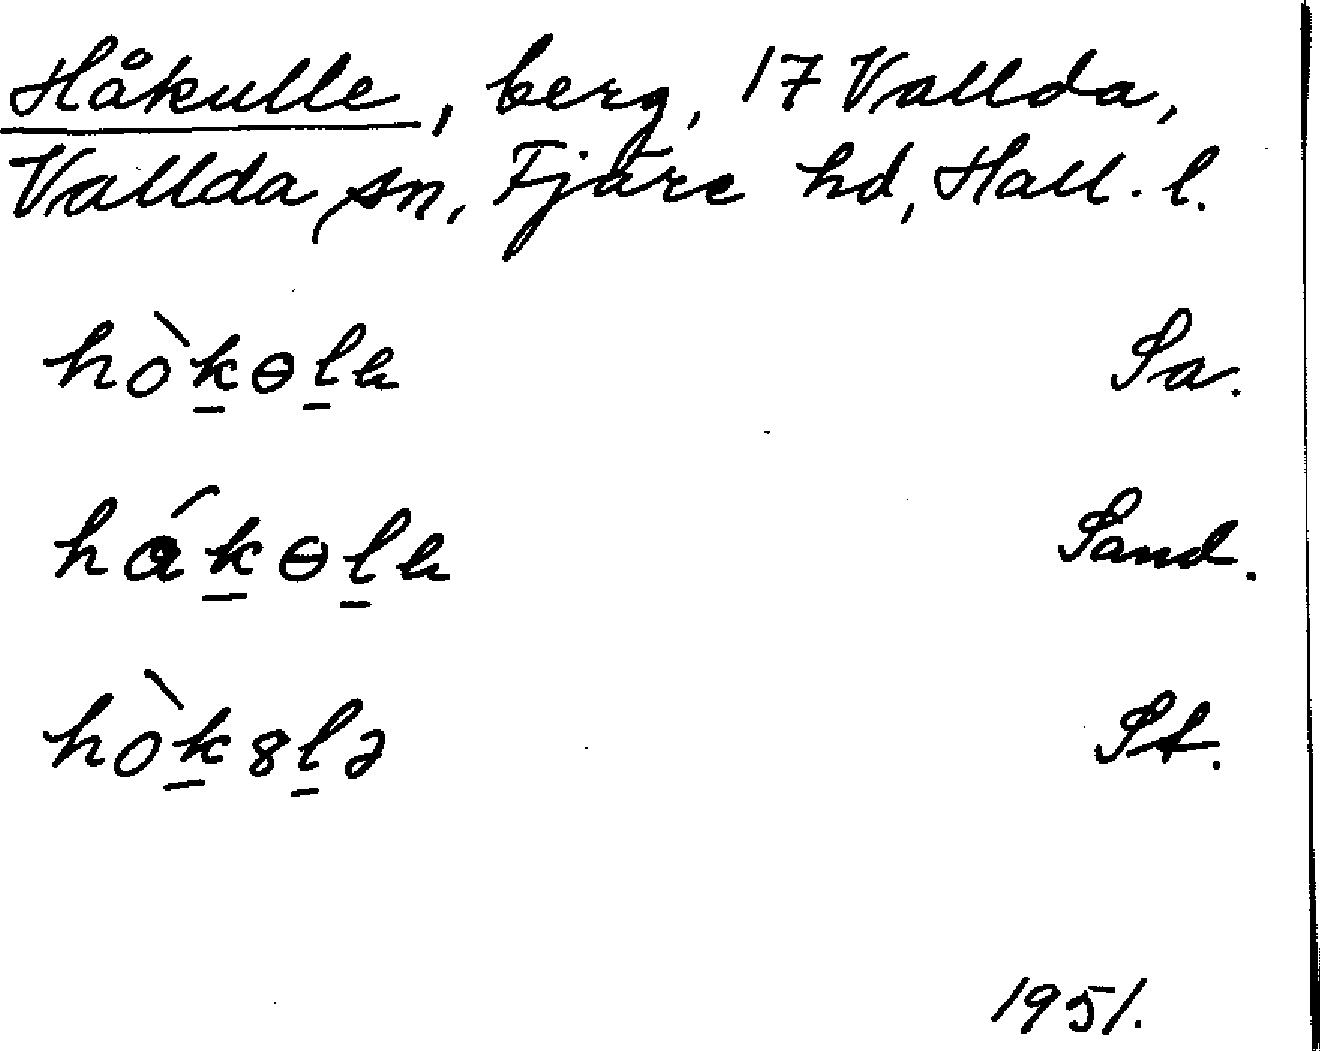 Håkulle, berg, 17 Vallda,
Vallda sn, Fjäre hd, Hall. l.
hòk̲ɵl̲a Sa.
hák̲ɵl̲a Sand.
hòk̲8l̲ə St.
1951.